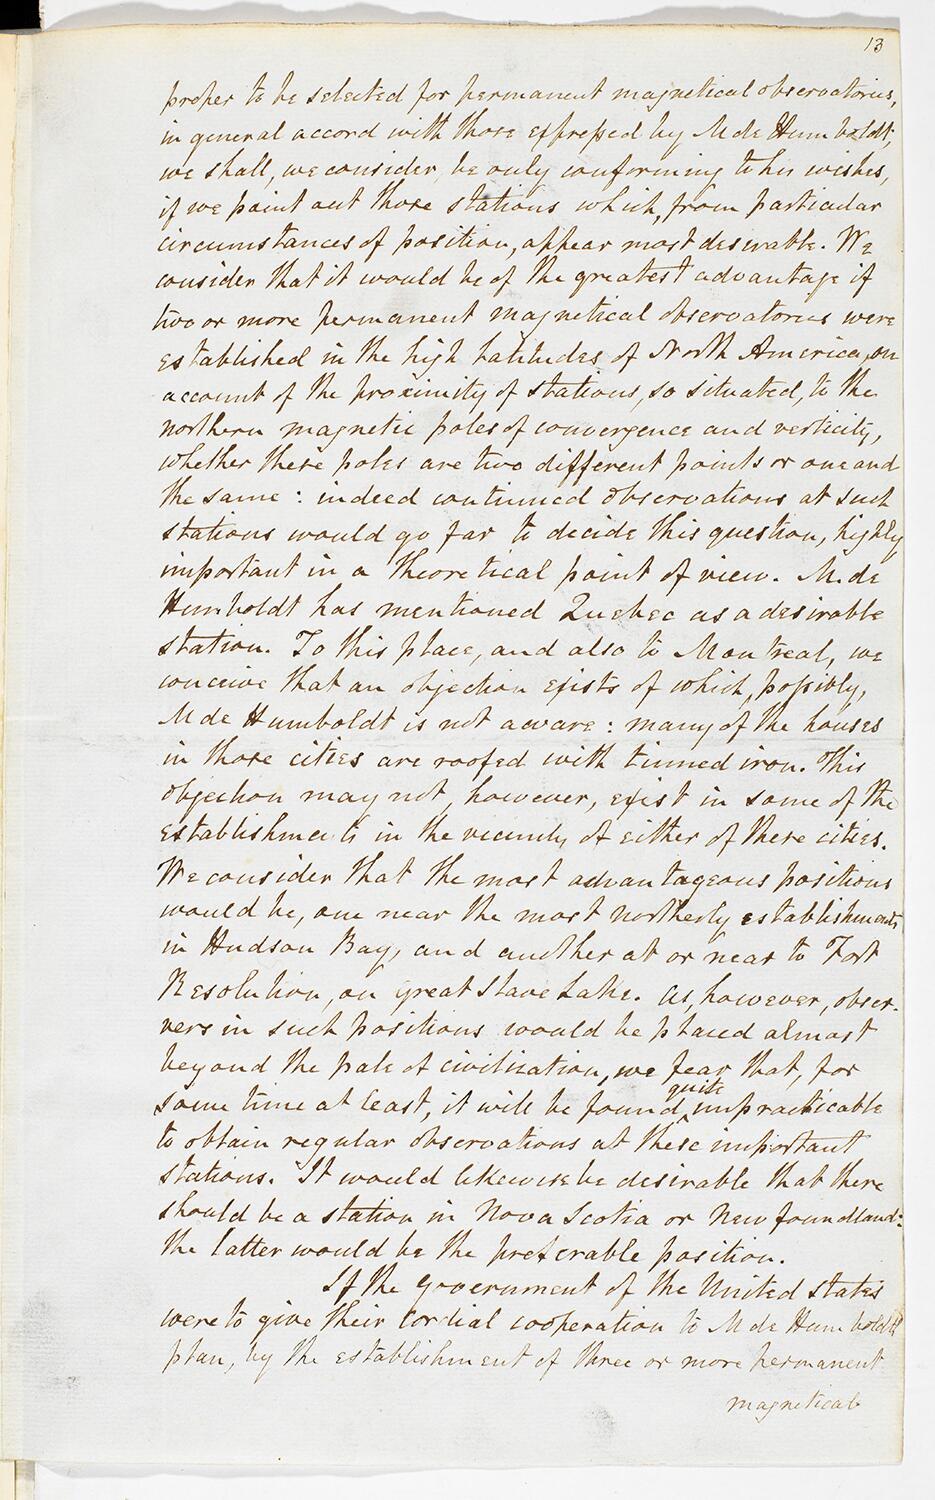 13
proper to be selected for permanent magnetical observatories,
in general accord with those expressed by M de Humboldt,
we shall, we consider, be only conforming to his wishes,
if we point out those stations which, from particular
circumstances of position, appear most desirable. We
consider that it would be of the greatest advantage if
two or more permanent magnetical observatories were
established in the high latitudes of North America, on
account of the proximity of stations, so situated, to the
northern magnetic poles of convergence and verticity,
whether these poles are two different points or one and
the same: indeed continued observations at such
stations would go far to decide this question, highly
important in a theoretical point of view. M. de
Humboldt has mentioned Quebec as a desirable
station. To this place, and also to Montreal, we
conceive that an objection exists of which, possibly,
M de Humboldt is not aware: many of the houses
in those cities are roofed with tinned iron. This
objection may not, however, exist in some of the
establishments in the vicinity of either of these cities.
We consider that the most advantageous positions
would be, one near the most northerly establishments
in Hudson Bay, and another at or near to Fort
Resolution, on great Slave Lake. As, however, obser-
vers in such positions would be placed almost
beyond the pale of civilization, we fear that, for
quite
some time at least, it will be found impracticable
to obtain regular observations at these important
stations. It would likewise be desirable that there
should be a station in Nova Scotia or Newfoundland:
the latter would be the preferable position.
If the Government of the United States
were to give their cordial cooperation to M de Humboldt's
plan, by the establishment of three or more permanent
magnetical